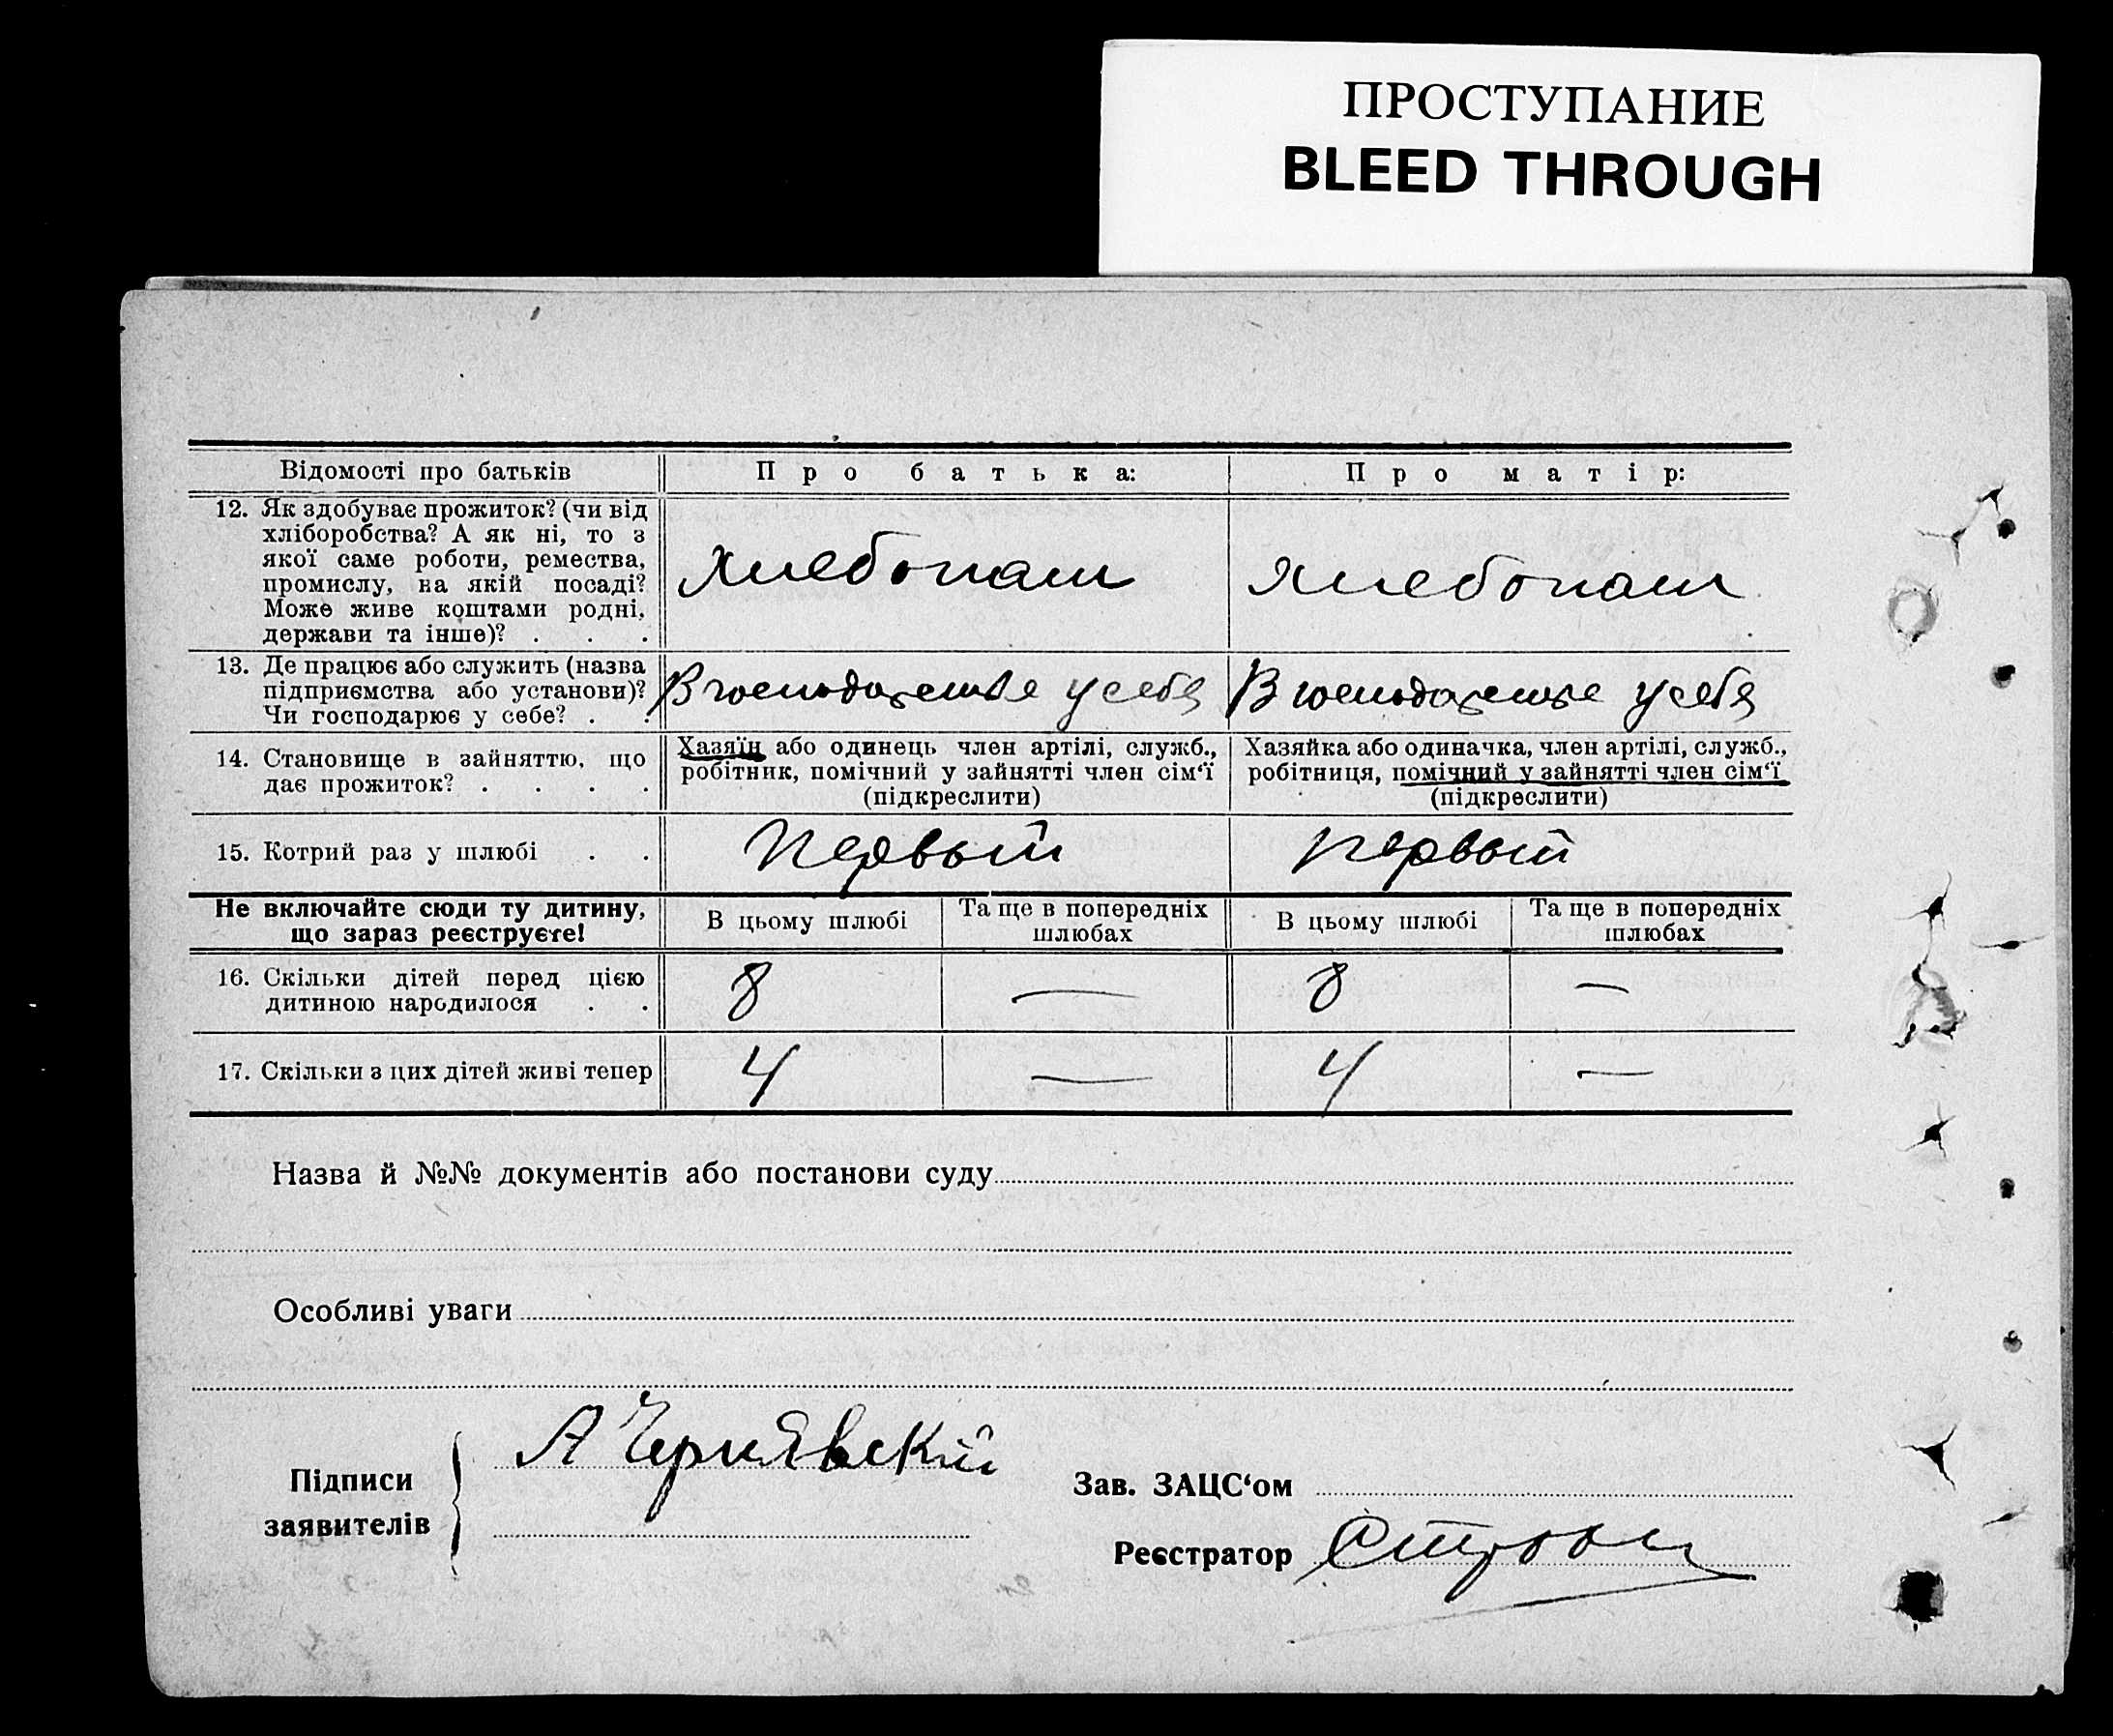 ПРОСТУПАНИЕ
BLEED THROUGH
Відомості про батьків
Про батька:
Про матір:
12. Як здобуває прожиток? (чи від
хліборобства? А як ні, то з
якої саме роботи, ремества,
промислу, на якій посаді?
Може живе коштами родні,
держави та інше)? . . .
Хлебопаш
Хлебопаш
13. Де працює або служить (назва
підприємства або установи)?
Чи господарює у себе? . .
В господарстве у себя
В господарстве у себя
14. Становище в зайняттю, що
дає прожиток? . . . .
Хазяїн або одинець член артілі, служб.,
робітник, помічний у зайнятті член сім‘ї
(підкреслити)
Хазяйка або одиначка, член артілі, служб.,
робітниця, помічний у зайнятті член сім‘ї
(підкреслити)
15. Котрий раз у шлюбі . .
Первый
первый
Не включайте сюди ту дитину,
що зараз реєструєте!
В цьому шлюбі
Та ще в попередніх
шлюбах
В цьому шлюбі
Та ще в попередніх
шлюбах
16. Скільки дітей перед цією
дитиною народилося . .
8
—
8
—
17. Скільки з цих дітей живі тепер
4
—
4
—
Назва й №№ документів або постанови суду
Особливі уваги
Підписи
заявителів
А Чернявский
Зав. ЗАЦС‘ом
Реєстратор